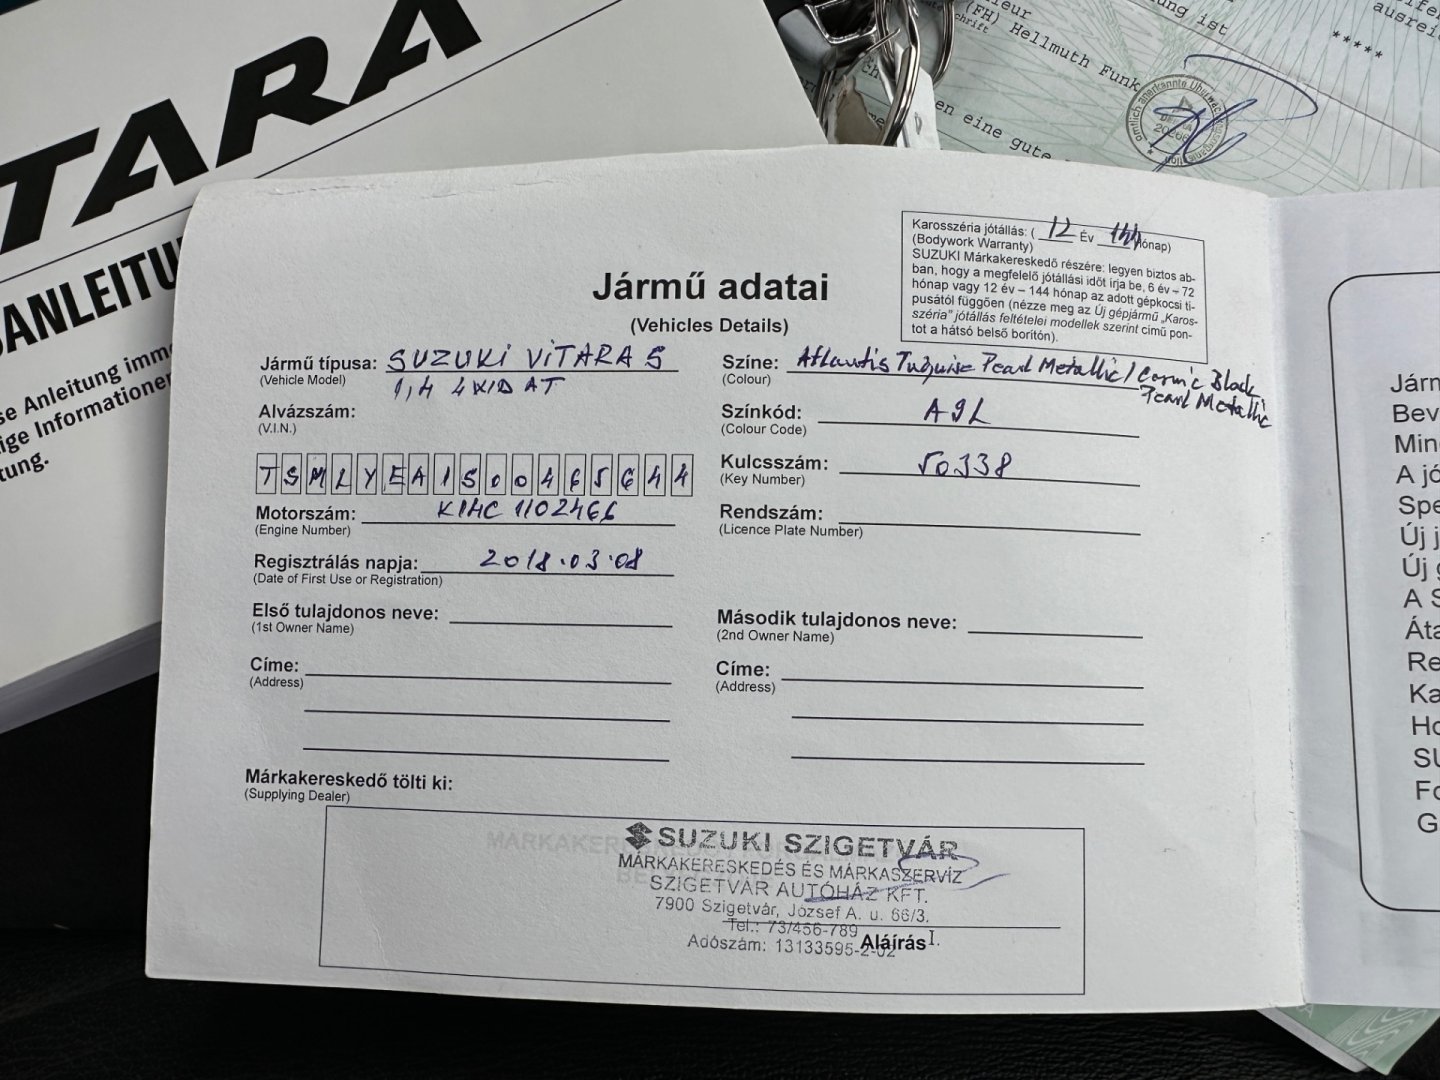 TARA
SANLEITU
se Anleitung imm
ige Informationen
tung.
ieur
(FH) Hellmuth Funk
ung ist
ausrei
*****
en eine gute
amtlich anerkannte
Karosszéria jótállás: ( 12 Év 144 hónap)
(Bodywork Warranty)
SUZUKI Márkakereskedő részére: legyen biztos ab-
ban, hogy a megfelelő jótállási időt írja be, 6 év – 72
hónap vagy 12 év – 144 hónap az adott gépkocsi tí-
pusától függően (nézze meg az Új gépjármű „Karos-
széria” jótállás feltételei modellek szerint című pon-
tot a hátsó belső borítón).
Jármű adatai
(Vehicles Details)
Jármű típusa: SUZUKI VITARA S
(Vehicle Model) 1,4 4WD AT
Színe: Atlantis Turquise Pearl Metallic / Cosmic Black
(Colour) Pearl Metallic
Alvázszám:
(V.I.N.)
TSMLYEA1S00465644
Színkód: A9L
(Colour Code)
Kulcsszám: 50338
(Key Number)
Motorszám: K14C 1102466
(Engine Number)
Rendszám:
(Licence Plate Number)
Regisztrálás napja: 2018.03.08
(Date of First Use or Registration)
Első tulajdonos neve:
(1st Owner Name)
Második tulajdonos neve:
(2nd Owner Name)
Címe:
(Address)
Címe:
(Address)
Márkakereskedő tölti ki:
(Supplying Dealer)
SUZUKI SZIGETVÁR
MÁRKAKERESKEDÉS ÉS MÁRKASZERVÍZ
SZIGETVÁR AUTÓHÁZ KFT.
7900 Szigetvár, József A. u. 66/3.
Tel.: 73/456-789
Adószám: 13133595-2-02
Aláírás I.
Járm
Bev
Min
A jó
Spe
Új j
Új g
A S
Áta
Re
Ka
Ho
SU
Fo
G